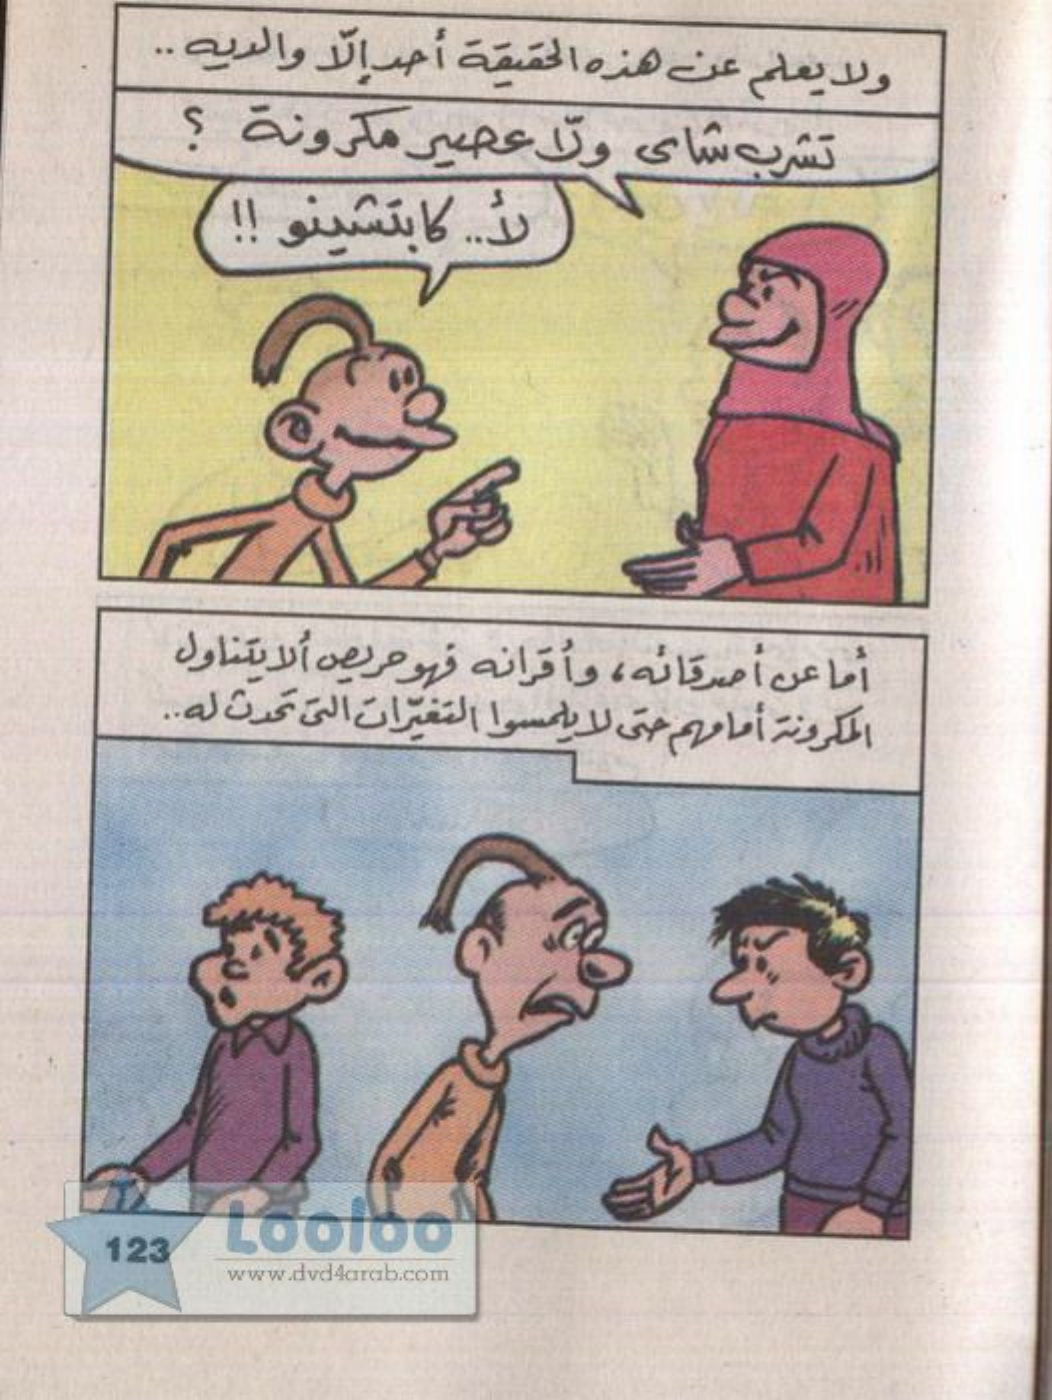 ولا يعلم عن هذه الحقيقة أحد إلّا والديه ..
تشرب شاى ولّا عصير مكرونة ؟
لأ.. كابتشينو !!
أما عن أصدقائه، وأقرانه فهو حريص ألا يتناول
المكرونة أمامهم حتى لا يلمسوا التغيّرات التى تحدث له..
123
Looloo
www.dvd4arab.com